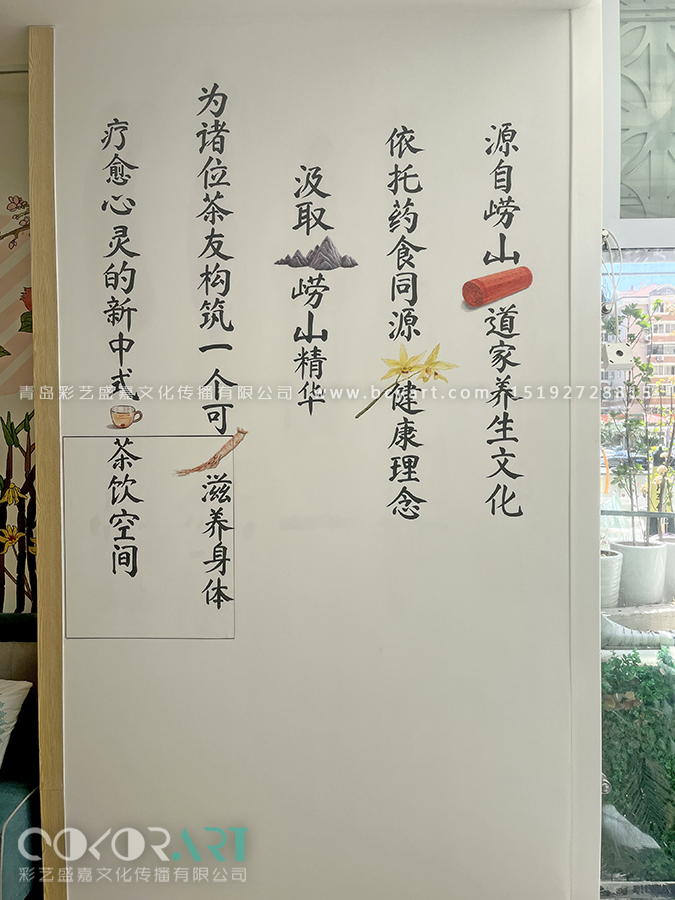 源自崂山道家养生文化
依托药食同源健康理念
汲取崂山精华
为诸位茶友构筑一个可滋养身体
疗愈心灵的新中式茶饮空间
青岛彩艺盛嘉文化传播有限公司
COLOR.ART
彩艺盛嘉文化传播有限公司